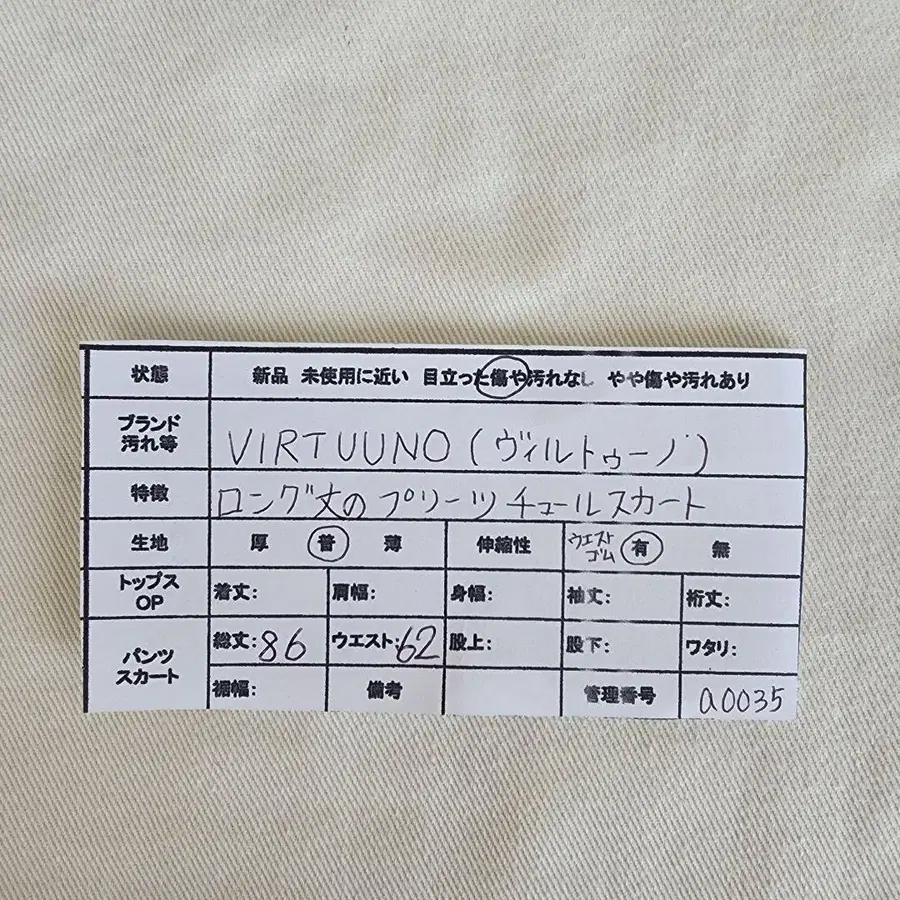 状態 新品 未使用に近い 目立った傷や汚れなし やや傷や汚れあり
ブランド
汚れ等 VIRTUUNO(ヴィルトゥーノ)
特徴 ロング丈のプリーツチュールスカート
生地 厚 普 薄 伸縮性 ウエスト
ゴム 有 無
トップス
OP 着丈: 肩幅: 身幅: 袖丈: 裄丈:
パンツ
スカート 総丈:86 ウエスト:62 股上: 股下: ワタリ:
裾幅: 備考 管理番号 a0035